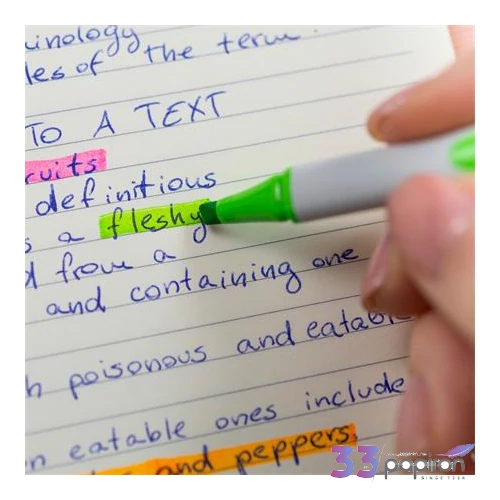 inology
les of the term.
TO A TEXT
ruits
definitious
s a fleshy
d from a
and containing one
h poisonous and eatab
n eatable ones include
and peppers.
33 papiran
SINCE 1334